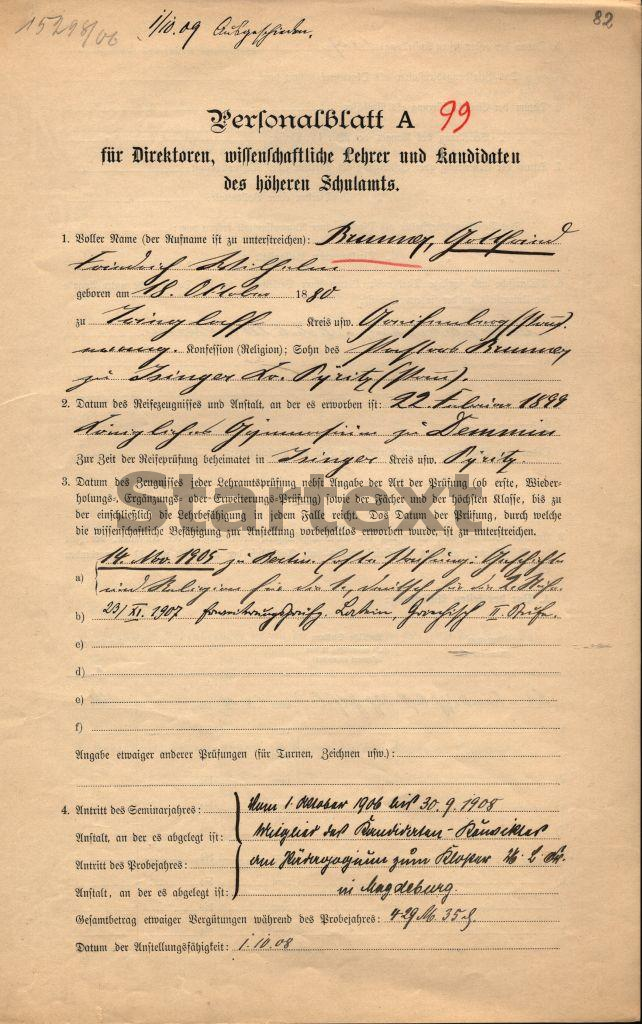 15298/06
1/10.09 Ausgeschieden.
82
Personalblatt A 99
für Direktoren, wissenschaftliche Lehrer und Kandidaten
des höheren Schulamts.
1. Voller Name (der Rufname ist zu unterstreichen): Brunner, Gotthard
Friedrich Wilhelm
geboren am 18. Oktober 1880
zu Kreis usw. Greifenberg
Konfession (Religion); Sohn des Pastors Brunner
zu Isinger Kr. Pyritz
2. Datum des Reifezeugnisses und Anstalt, an der es erworben ist: 22. Februar 1899
Königliches Gymnasium zu Demmin
Zur Zeit der Reifeprüfung beheimatet in Isinger Kreis usw. Pyritz.
3. Datum des Zeugnisses jeder Lehramtsprüfung nebst Angabe der Art der Prüfung (ob erste, Wieder-
holungs-, Ergänzungs- oder Erweiterungs-Prüfung) sowie der Fächer und der höchsten Klasse, bis zu
der einschließlich die Lehrbefähigung in jedem Falle reicht. Das Datum der Prüfung, durch welche
die wissenschaftliche Befähigung zur Anstellung vorbehaltlos erworben wurde, ist zu unterstreichen.
Startext
14. Nov. 1905 zu Berlin erste Prüfung: Geschichte
a) und Religion für die 1., Deutsch für die 2. Stufe.
b) 23/XI. 1907 Erweiterungsprüfg. Latein, Griechisch II. Stufe.
c)
d)
e)
f)
Angabe etwaiger anderer Prüfungen (für Turnen, Zeichnen usw.):
4. Antritt des Seminarjahres: Vom 1. Oktober 1906 bis 30.9.1908
Anstalt, an der es abgelegt ist: Mitglied des Kandidaten-Konviktes
Antritt des Probejahres: am Pädagogium zum Kloster U. L. Fr.
Anstalt, an der es abgelegt ist: in Magdeburg.
Gesamtbetrag etwaiger Vergütungen während des Probejahres: 429 M. 35 ₰.
Datum der Anstellungsfähigkeit: 1.10.08